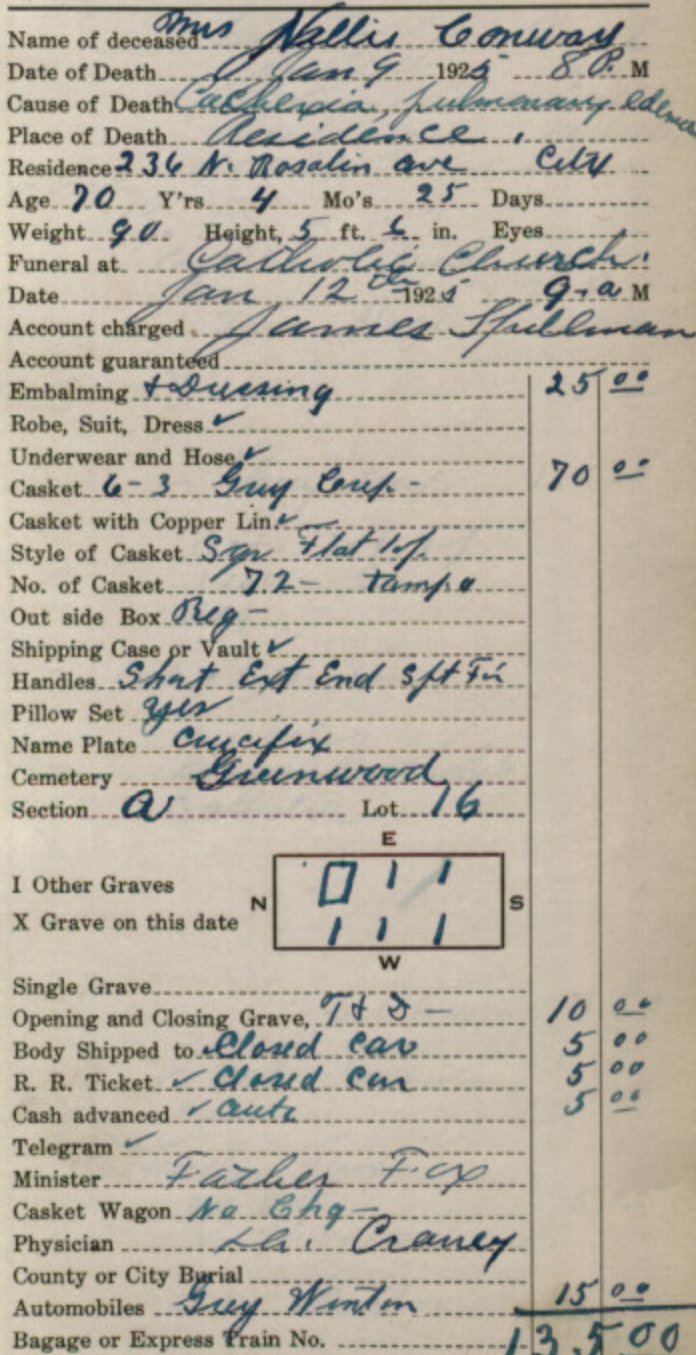 Name of deceased Mrs Nellis Conway
Date of Death Jan 9 1925 8 P. M
Cause of Death Cachexia, pulmonary edema
Place of Death Residence.
Residence 236 N. Rosalin ave City
Age 70 Y'rs 4 Mo's 25 Days
Weight 90 Height, 5 ft. 6 in. Eyes
Funeral at Catholic Church.
Date Jan 12th 1925 9-a M
Account charged James Spillman
Account guaranteed
Embalming & Dressing 25 00
Robe, Suit, Dress ✓
Underwear and Hose ✓
Casket 6-3 Grey 70 00
Casket with Copper Lin. ✓
Style of Casket Sqr Flat top.
No. of Casket 72- tampa
Out side Box Reg-
Shipping Case or Vault ✓
Handles Short Ext End
Pillow Set yes
Name Plate crucifix
Cemetery Greenwood
Section a Lot 16
E
I Other Graves
N S
X Grave on this date
W
Single Grave
Opening and Closing Grave, T & D - 10 00
Body Shipped to Closed Car 5 00
R. R. Ticket ✓ Closed Car 5 00
Cash advanced ✓ auto 5 00
Telegram ✓
Minister Father Fox
Casket Wagon No Chg-
Physician Dr. Craney
County or City Burial
Automobiles Grey Winton 15 00
Bagage or Express Train No. 135 00